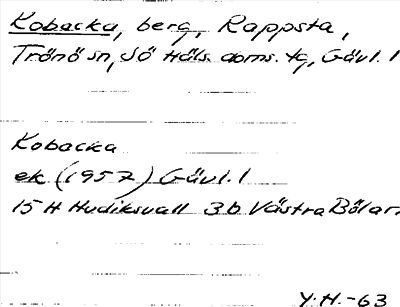 Kobacka, berg, Rappsta,
Trönö sn, Sö Häls. doms. tg, Gävl. l
Kobacka
ek (1957) Gävl. l
15 H Hudiksvall 3b Västra Bölan
Y.H.-63